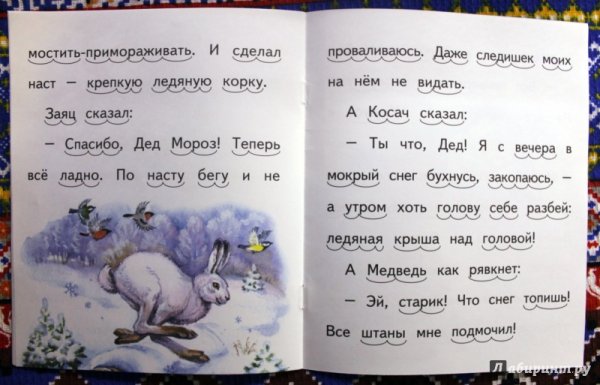 мостить-примораживать. И сделал
наст – крепкую ледяную корку.
Заяц сказал:
– Спасибо, Дед Мороз! Теперь
всё ладно. По насту бегу и не
проваливаюсь. Даже следишек моих
на нём не видать.
А Косач сказал:
– Ты что, Дед! Я с вечера в
мокрый снег бухнусь, закопаюсь, –
а утром хоть голову себе разбей:
ледяная крыша над головой!
А Медведь как рявкнет:
– Эй, старик! Что снег топишь!
Все штаны мне подмочил!
Лабиринт.ру